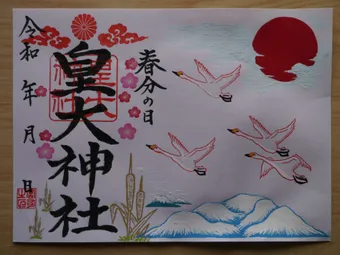 春分の日
皇大神社
令和 年 月 日